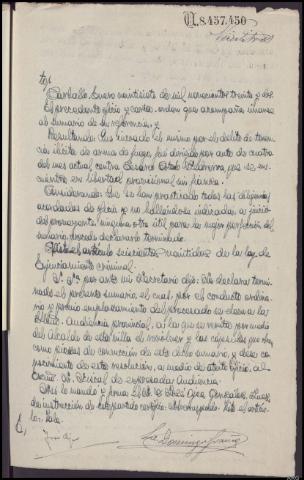 N.8457.450
Carballo, Enero veintisiete de mil novecientos treinta y dos
El precedente oficio y carta-orden que acompaña únanse
al sumario de su referencia y
Resultando: Que incoado el mismo por el delito de tenen-
cia ilícita de arma de fuego, fué dirigido por auto de cuatro
del mes actual contra
cuentra en libertad provisional sin fianza.
Considerando: Que se han practicado todas las diligencias
acordadas de oficio y no hallándose indicadas a juicio
del proveyente ninguna otra útil para la mejor perfección del
sumario, procede declararlo terminado.
Visto el artículo seiscientos veintidos de la ley de
Enjuiciamiento criminal.
S. Sª por ante mí Secretario dijo: Se declara termi-
nado el presente sumario el cual, por el conducto ordina-
rio y previo emplazamiento del procesado se eleva a la
Iltma. Audiencia provincial, a la que se remita por medio
del Alcalde de esta villa el revolver y las cápsulas que obran
como piezas de convicción de este dicho sumario, y dése co-
nocimiento de esta resolución, por medio de atento oficio, al
Excmo. Sr. Fiscal de expresada Audiencia.
Así lo manda y firma Don José Gonzalez, Juez
de instrucción de este partido certifico.